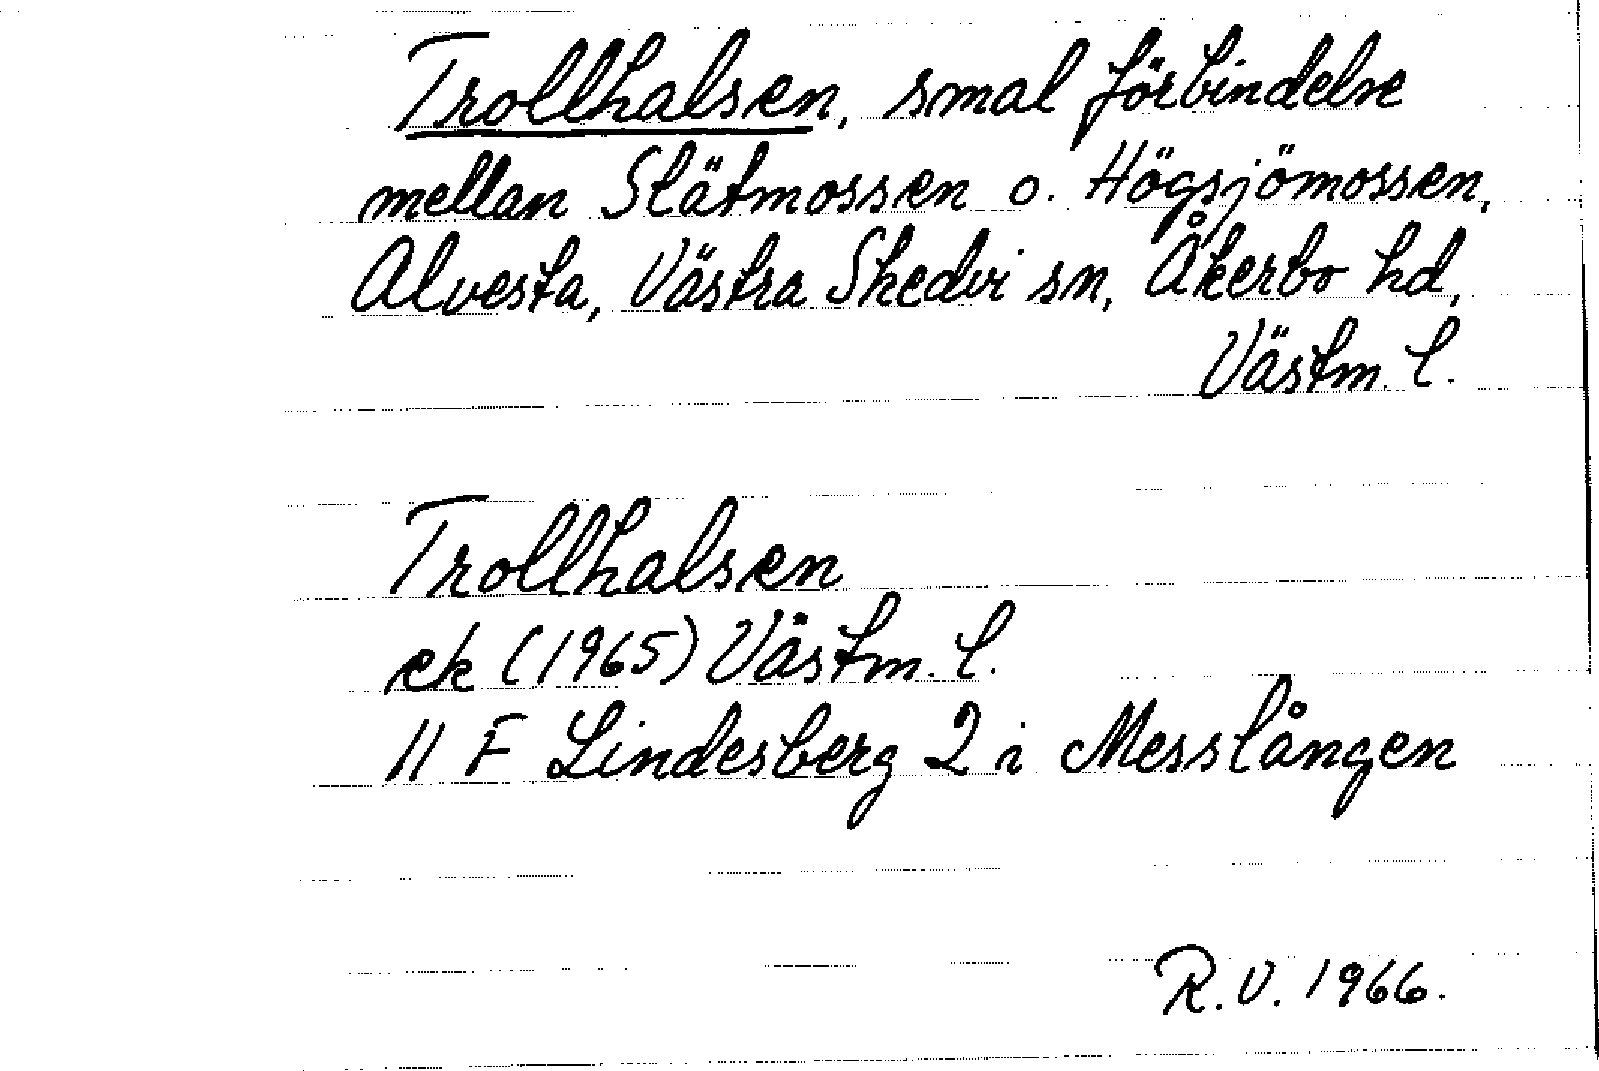 Trollhalsen, smal förbindelse
mellan Slätmossen o. Högsjömossen,
Alvesta, Västra Skedvi sn, Åkerbo hd,
Västm. l.
Trollhalsen
ek (1965) Västm. l.
11 F Lindesberg 2 i Messlången
R.V. 1966.